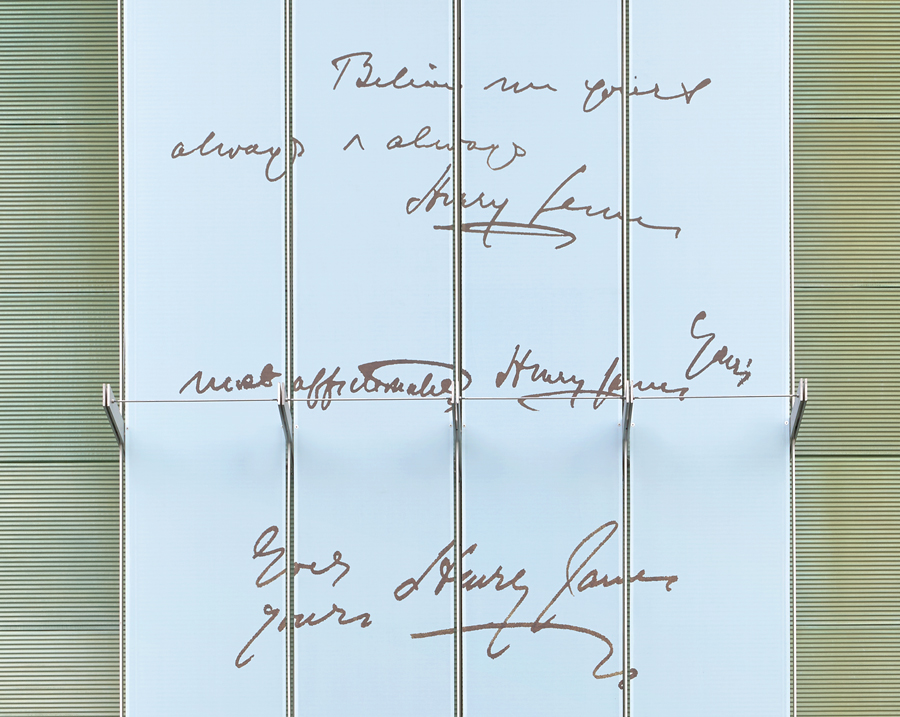 Believe me yours
always & always
Henry James
Yours
most affectionately Henry James
Ever
yours Henry James